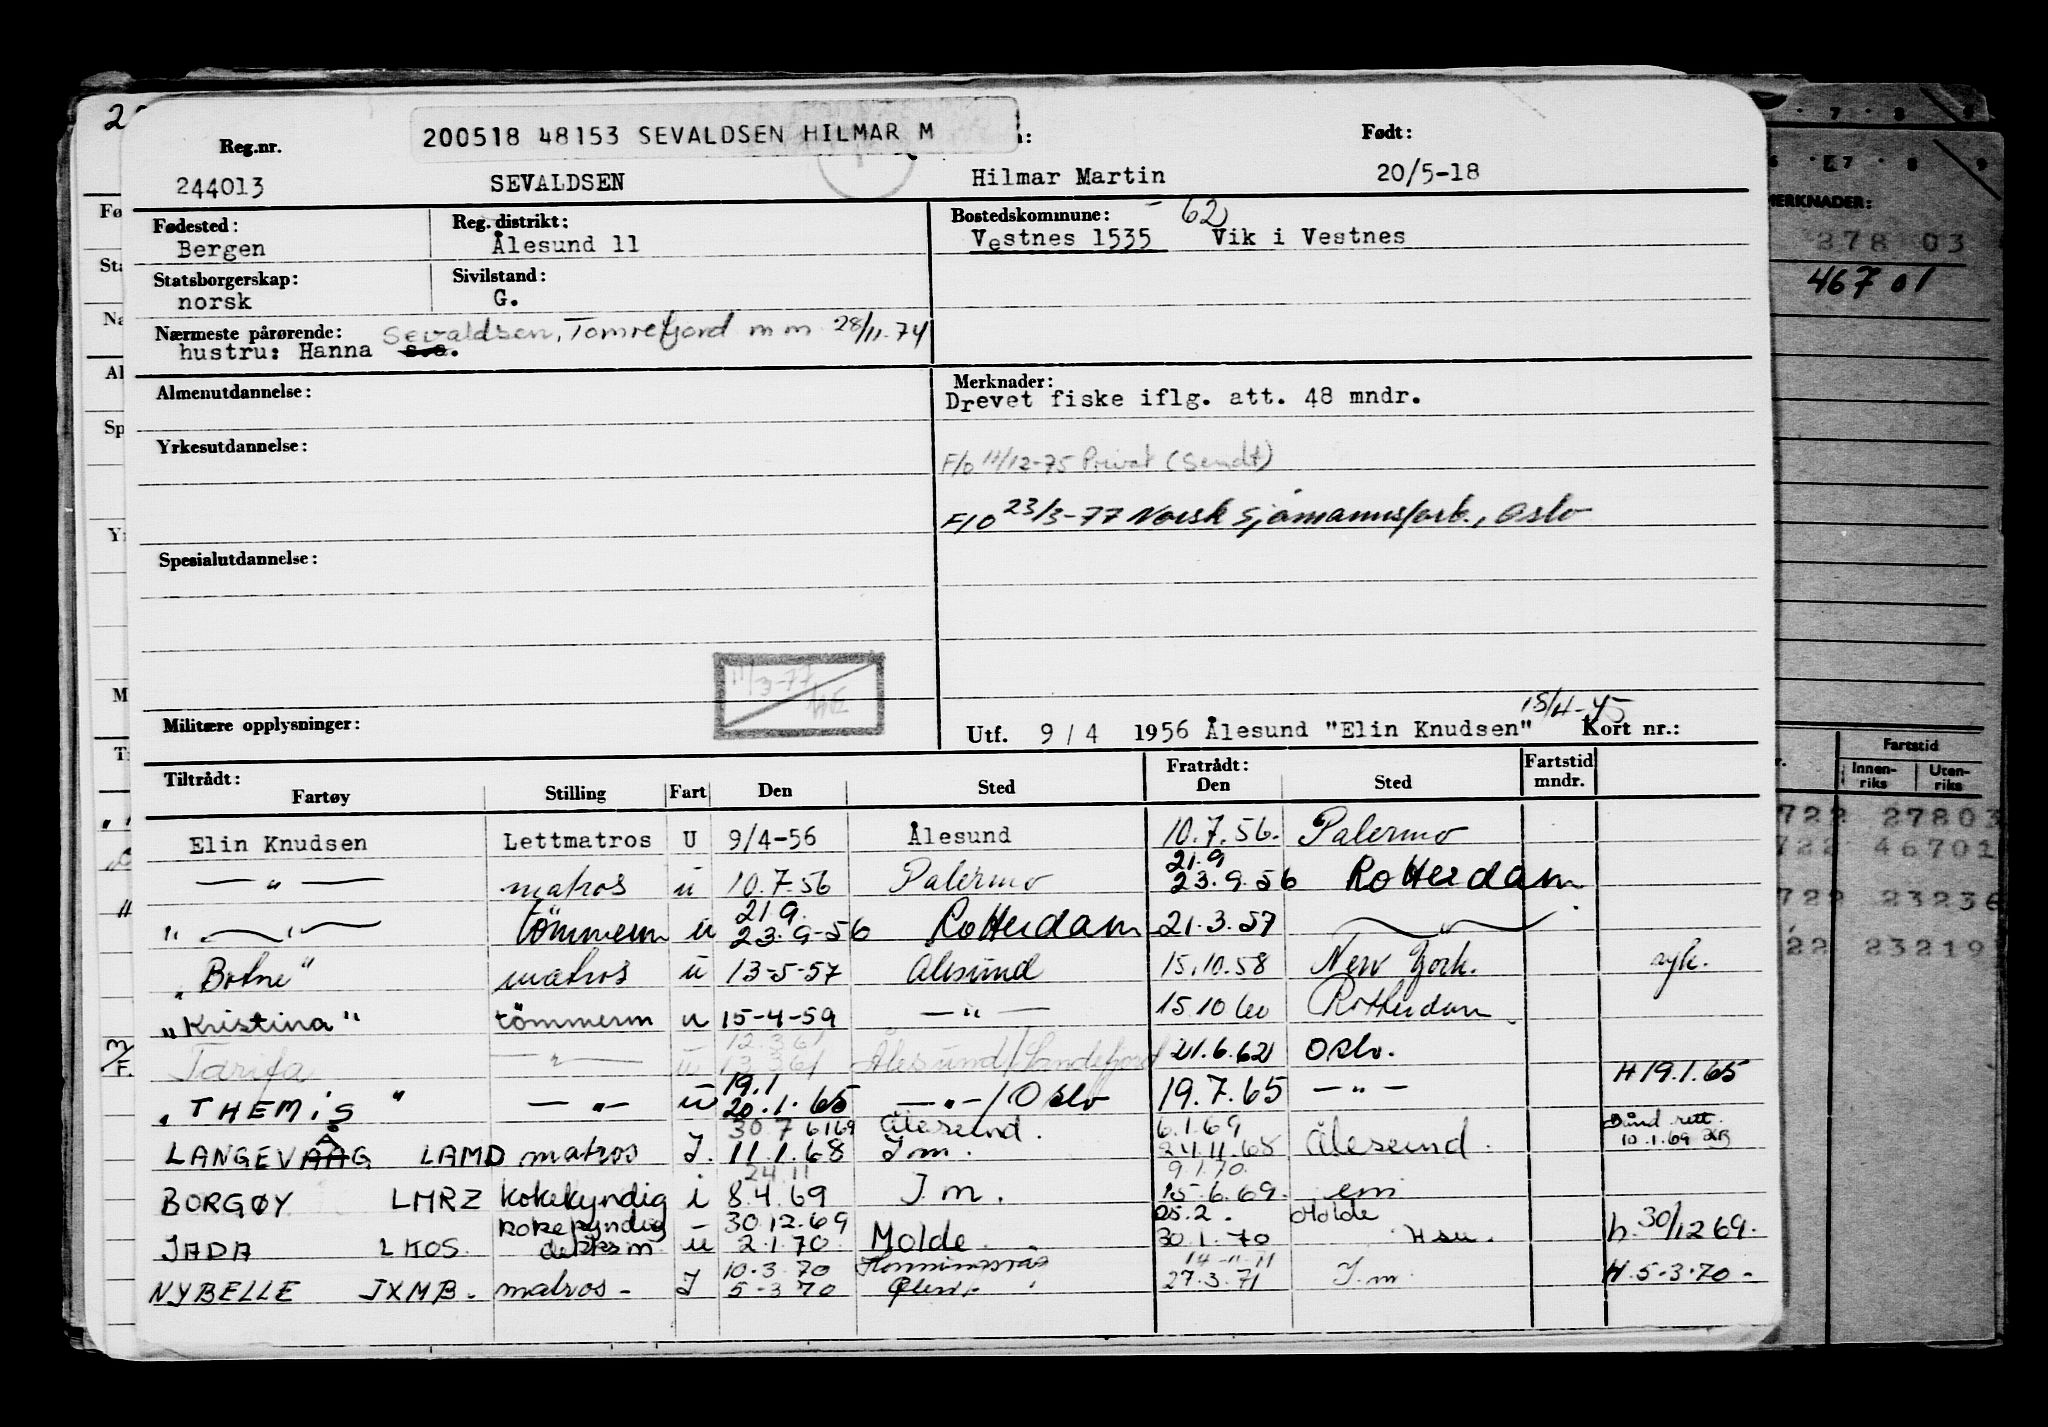 200518 48153 SEVALDSEN HILMAR M
Reg.nr. Født:
244013 SEVALDSEN Hilmar Martin 20/5-18
Fødested: Reg. distrikt: Bostedskommune: 62
Bergen Ålesund 11 Vestnes 1535 Vik i Vestnes
Statsborgerskap: Sivilstand:
norsk G.
Nærmeste pårørende: Sevaldsen, Tomrefjord m m 28/11-74
hustru: Hanna s.s.
Almenutdannelse: Merknader:
Drevet fiske iflg. att. 48 mndr.
Yrkesutdannelse:
F/o 11/12-75 Privat (Sendt)
F/O 23/3-77 Norsk Sjømannsforb., Oslo
Spesialutdannelse:
11/3-77
15/4-45
Militære opplysninger: Utf. 9 / 4 1956 Ålesund "Elin Knudsen" Kort nr.:
Tiltrådt: Fratrådt: Fartstid
Fartøy Stilling Fart Den Sted Den Sted mndr.
Elin Knudsen Lettmatros U 9/4-56 Ålesund 10.7.56. Palermo
21.9
— " — matros u 10.7.56 Palermo 23.9.56 Rotterdam
21.9.
" — " — tömmerm u 23.9-56 Rotterdam 21.3.57 — " —
"Botne" matros u 13-5-57 Ålesund 15.10.58 New York. syk.
"Kristina" tömmerm u 15-4-59 — " — 15.10 60 Rotterdam
12.3 61
Tarifa — " — u 13.3 61 Ålesund/Sandefjord 21.6.62 Oslo.
19.1 H 19.1.65
"THEMIS" — " — u 20.1.65 — " — / Oslo 19.7.65 — " —
30 7 6169 Ålesund. 6.1.69
LANGEVÅG LAMD matros I. 11.1.68 I m. 24.11.68 Ålesund. 10.1.69
24.11 9.1.70.
BORGØY LMRZ kokekyndig i 8.4.69 I m. 15.6.69. em
kokekyndig 30.12.69 25.2. Molde
JADA LKOS. dekksm. u 2.1.70. Molde 30.1.70 Hsu. h. 30/12 69.
10.3.70 Honningsvåg 14-11-71
NYBELLE JXMB. matros - I 5-3 70 27.3.71 I m. H. 5-3-70 -
MERKNADER:
278 03
467 01
Fartstid
Innen-
riks
Uten-
riks
722 27803
722 46701
722 23236
722 23219